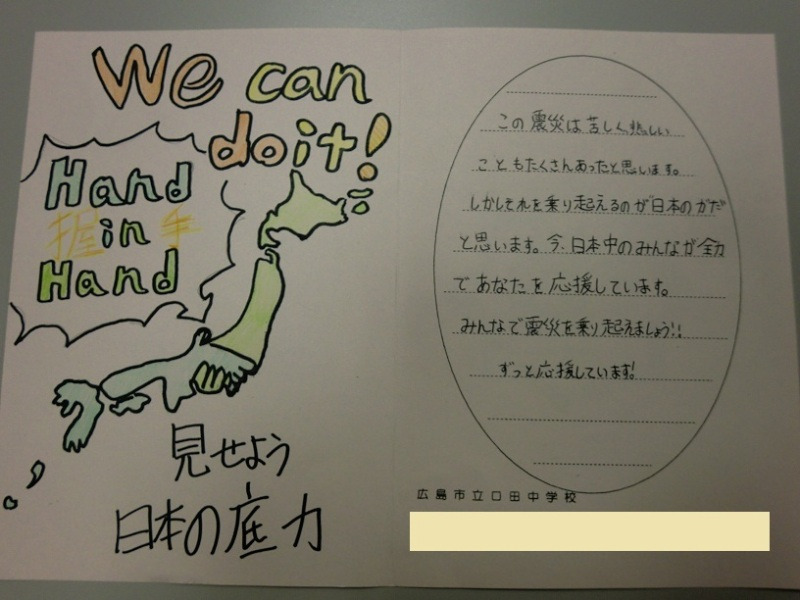 We can
do it!
Hand
握 in 手
Hand
見せよう
日本の底力
この震災は苦しく、悲しい
こともたくさんあったと思います。
しかしそれを乗り起えるのが日本のかだ
と思います。今、日本中のみんなが全力
であなたを応援しています。
みんなで震災を乗り起えましょう!!
ずっと応援しています!
広島市立口田中学校